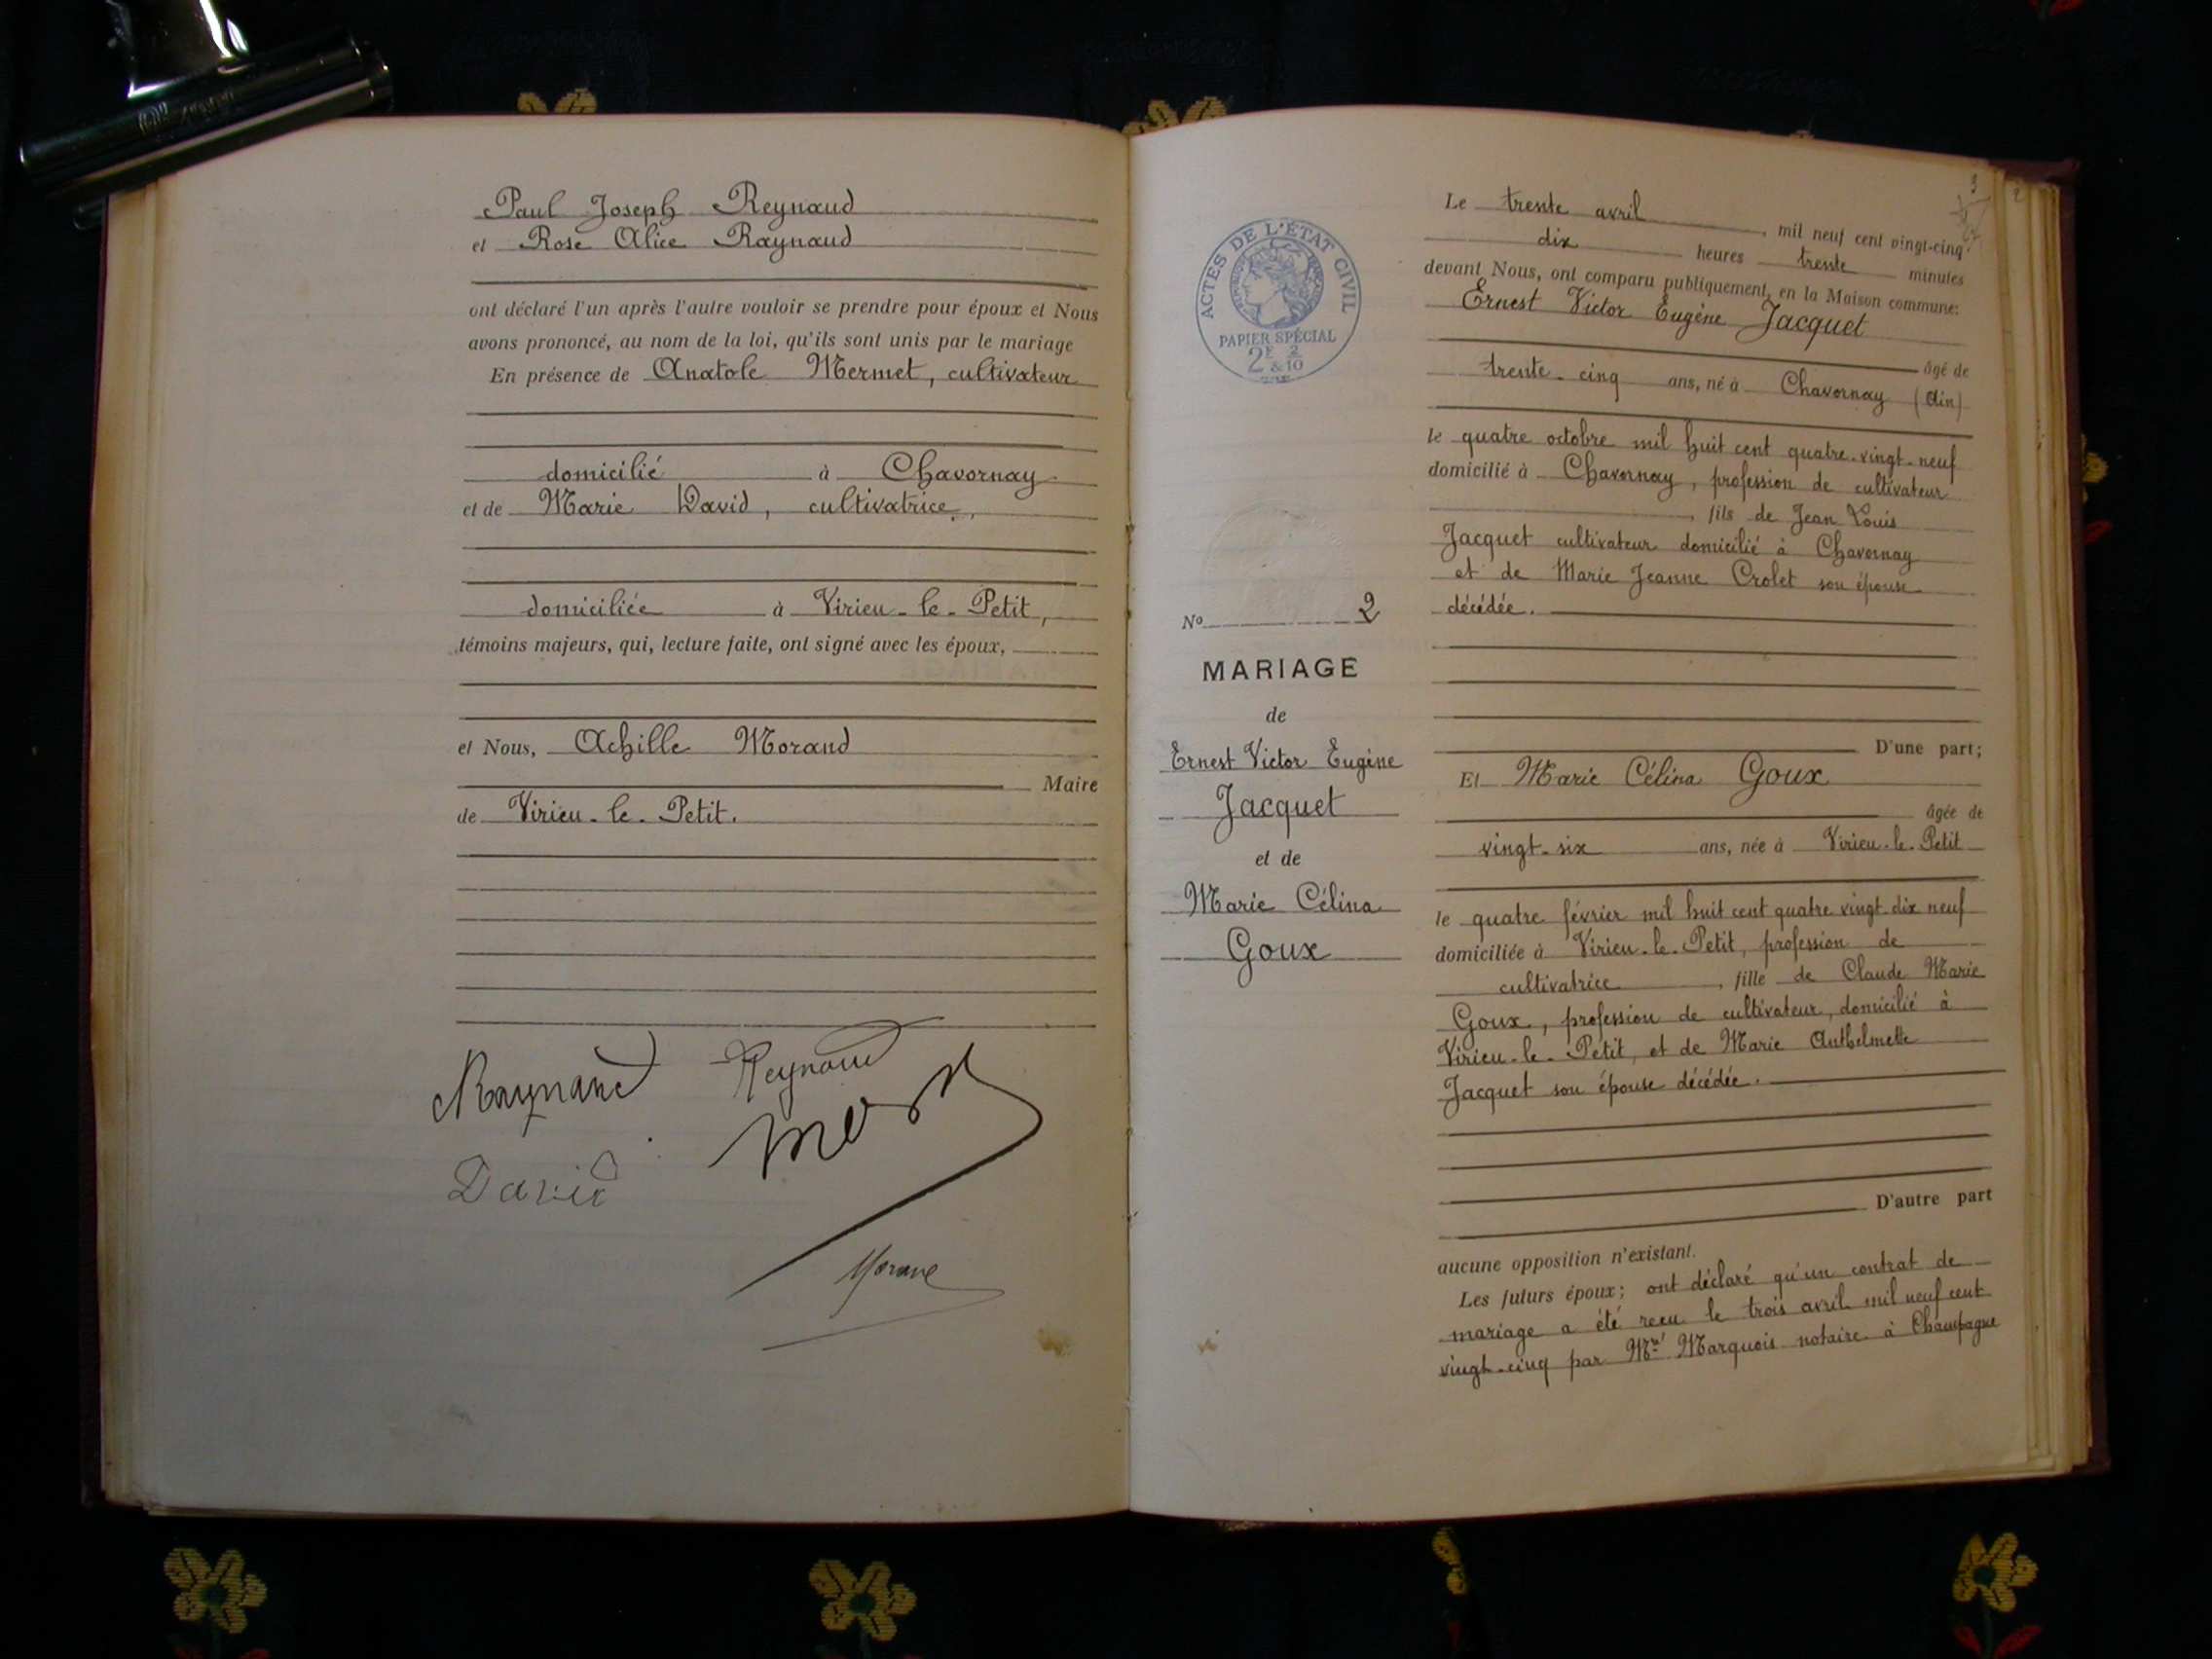 Paul Joseph Reynaud
et Rose Alice Raynaud
ont déclaré l'un après l'autre vouloir se prendre pour époux et Nous
avons prononcé, au nom de la loi, qu'ils sont unis par le mariage
En présence de Anatole Mermet, cultivateur
domicilié à Chavornay
et de Marie David, cultivatrice,
domiciliée à Virieu-le-Petit,
témoins majeurs, qui, lecture faite, ont signé avec les époux,
et Nous, Achille Morand
Maire
de Virieu-le-Petit.
Raynaud Reynaud
David
Morand
ACTES DE L'ÉTAT CIVIL
RÉPUBLIQUE FRANÇAISE
PAPIER SPÉCIAL
2F & 2/10
No 2
MARIAGE
de
Ernest Victor Eugène
Jacquet
et de
Marie Célina
Goux
3
2
Le trente avril, mil neuf cent vingt-cinq
dix heures trente minutes
devant Nous, ont comparu publiquement, en la Maison commune:
Ernest Victor Eugène Jacquet
âgé de
trente-cinq ans, né à Chavornay (Ain)
le quatre octobre mil huit cent quatre-vingt-neuf
domicilié à Chavornay, profession de cultivateur
, fils de Jean Louis
Jacquet cultivateur domicilié à Chavornay
et de Marie Jeanne Crolet son épouse
décédée.
D'une part;
Et Marie Célina Goux
âgée de
vingt-six ans, née à Virieu-le-Petit
le quatre février mil huit cent quatre vingt-dix neuf
domiciliée à Virieu-le-Petit, profession de
cultivatrice, fille de Claude Marie
Goux, profession de cultivateur, domicilié à
Virieu-le-Petit, et de Marie Anthelmette
Jacquet son épouse décédée.
D'autre part
aucune opposition n'existant.
Les futurs époux; ont déclaré qu'un contrat de
mariage a été reçu le trois avril mil neuf cent
vingt-cinq par Marquois notaire à Champagne